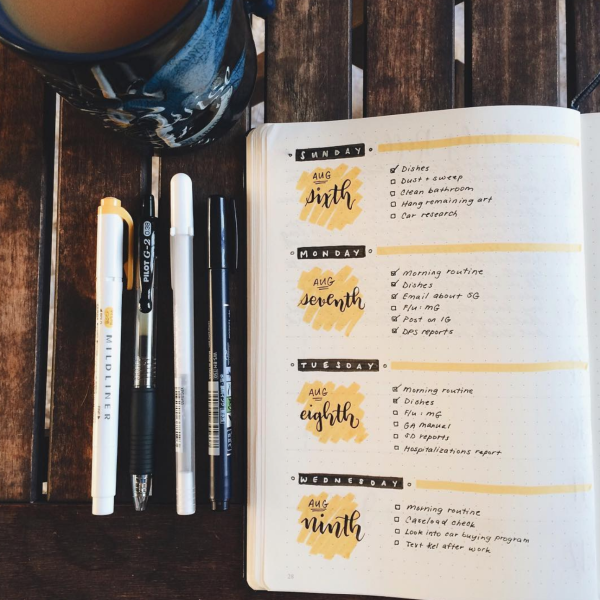 SUNDAY
AUG
sixth
Dishes
Dust + sweep
Clean bathroom
Hang remaining art
Car research
MONDAY
AUG
seventh
Morning routine
Dishes
Email about SG
F/u: MG
Post on IG
DPS reports
TUESDAY
AUG
eighth
Morning routine
Dishes
F/u: MG
GA manual
SD reports
Hospitalizations report
WEDNESDAY
AUG
ninth
Morning routine
Caseload check
Look into car buying program
Text Kel after work
MILDLINER
PILOT G-2